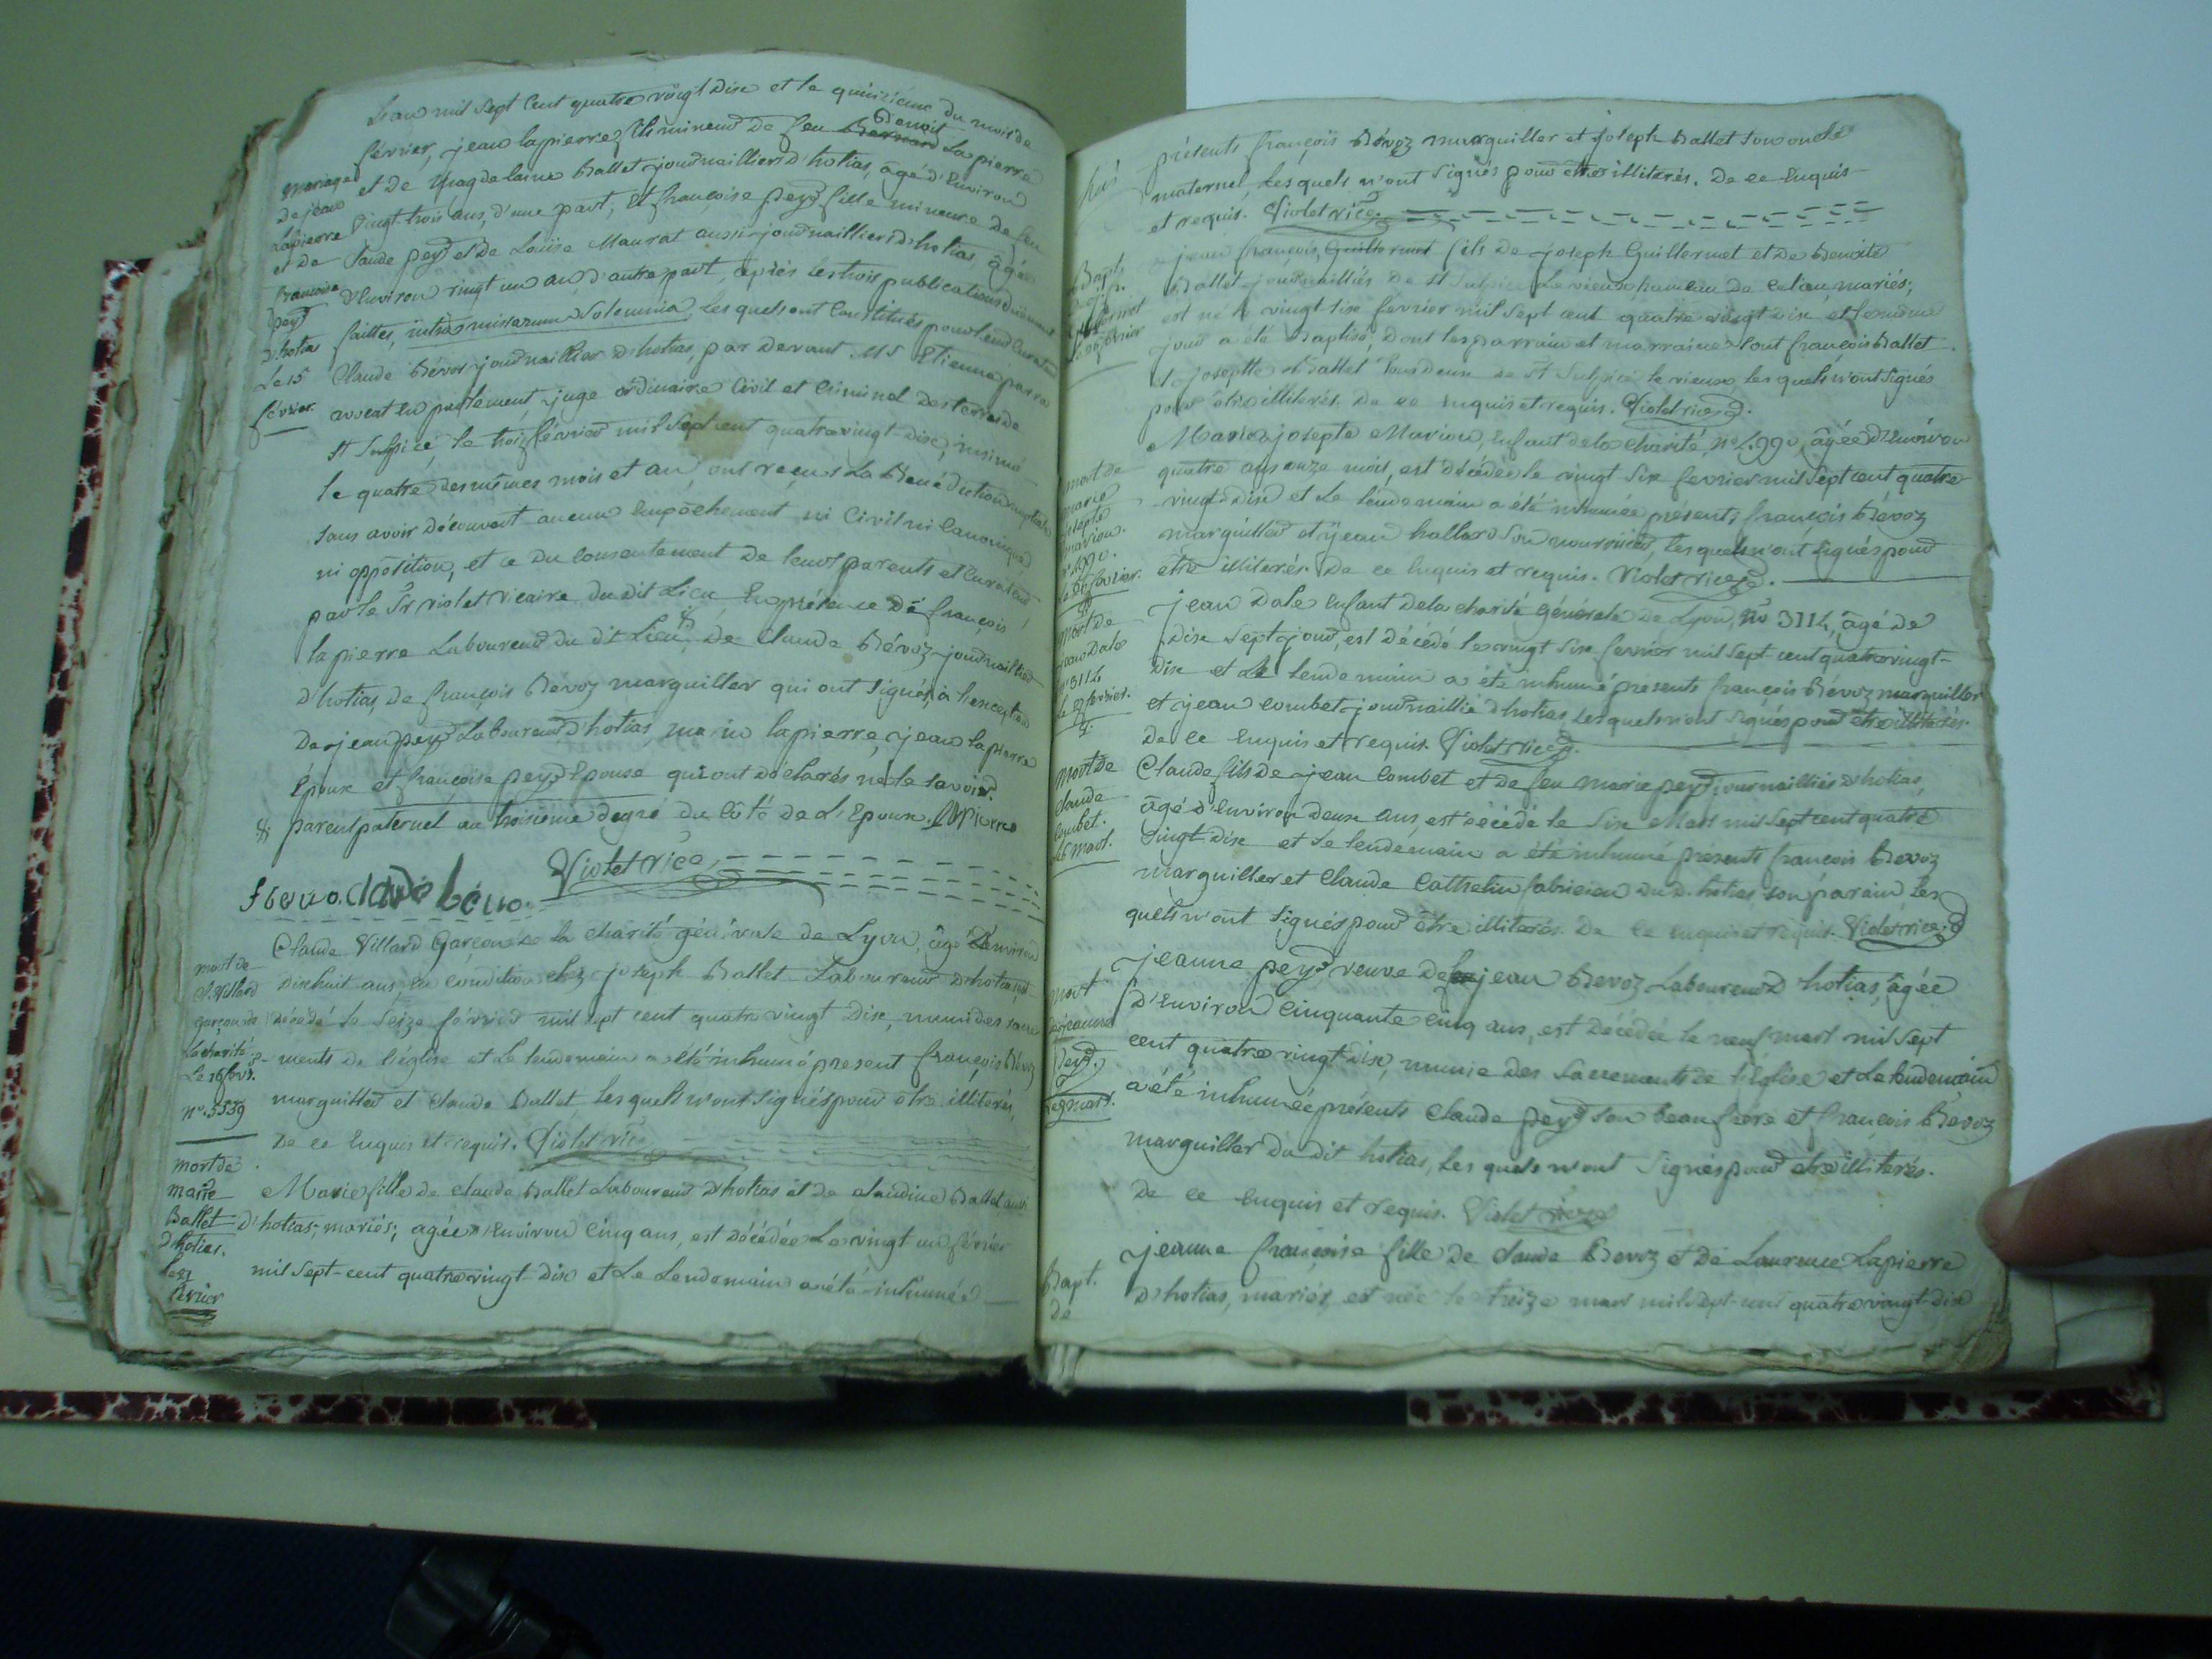 L'an mil sept cent quatre vingt dix et le quinzième du mois de
février, jean lapierre fils mineur de feu Bernard Benoit La pierre
et de Magdelaine Ballet journailliers d'hotias, âgé d'Environ
vingt-trois ans, d'une part, Et françoise peyd fille mineure de feu
Claude peyd et de Louïse Maurat aussi journailliers d'hotias, âgée
d'Environ vingt un an, d'autre part, après les trois publications dûement
faittes, intra missarum solemnia, les quels ont Constitués pour leur Curateur
Claude Bévoz journaillier d'hotias, par devant Mr Etienne
avocat en parlement, juge ordinaire Civil et Criminel des terres de
St Sulpice, le trois février mil sept cent quatre vingt-dix, insinué
le quatre des mêmes mois et an, ont reçus La Bénédiction nuptiale
sans avoir découvert aucun Empêchement ni Civil ni Canonique
ni opposition, et ce du Consentement de leurs parents et Curateur
par le Sr violet vicaire du dit Lieu En présence de françois
la pierre Laboureur du dit Lieu, de Claude Bévoz journaillier
d'hotias, de françois Bévoz marguiller qui ont signés, à l'exception
de jean peyd Laboureur d'hotias, lapierre, jean lapierre
Epoux et françoise peyd Epouse qui ont déclarés ne le savoir.
parent paternel au troisième degré du Côté de L'Epoux. lapierre
Violet vice
Mariage
de jean
Lapierre
et de
françoise
peyd
d'hotias
Le 15
février.
Claude Villard Garçon de la charité générale de Lyon, âgé d'Environ
dixhuit ans, en condition chez joseph Ballet Laboureur d'hotias, est
décédé le seize février mil sept cent quatre vingt dix, muni des sacre-
ments de l'église et le lendemain a été inhumé présent françois Bévoz
marguiller et Claude Ballet, les quels n'ont signés pour être illiterés,
De ce Enquis et requis. Violet vice
mort de
C. Villard
garçon de
La charité
Le 16 fevr.
n°. 5539
Marie fille de Claude Ballet Laboureur d'hotias et de claudine Ballet aussi
d'hotias, mariés; agée d'Environ Cinq ans, est décédée Le vingt un février
mil sept-cent quatre vingt-dix et Le Lendemain a été inhumée
mort de
marie
Ballet
d'hotias.
le 21
février
présents françois Bévoz marguiller et joseph Ballet son oncle
maternel, les quels n'ont signés pour être illiterés. De ce Enquis
et requis. Violet vice
jean françois, Guillermet fils de joseph Guillermet et de Benoite
Ballet journailliés de St Sulpice Le vieux, hameau de ce lieu, mariés;
est né le vingt-six fevrier mil sept cent quatre vingt dix et le même
jour a été Baptisé; Dont les parrain et marraine sont françois Ballet
et josephte Ballet tous deux de St Sulpice le vieux, les quels n'ont signés
pour être illiterés. De ce Enquis et requis. Violet vice
Marie josepte Marion, Enfant de la charité, n° 4990, âgée d'Environ
quatre ans onze mois, est décédée le vingt six fevrier mil sept cent quatre
vingt-dix et Le lendemain a été inhumée présents françois Bévoz
marguiller et jean hallard son nourricier, les quels n'ont signés pour
être illiterés. De ce Enquis et requis. Violet vice
mort de
marie
josepte
marion.
n° 4990.
Le 26 fevrier.
jean Dale Enfant de la charité générale de Lyon, n° 3114, âgé de
dix sept jour, est décédé le vingt six fevrier mil sept cent quatre vingt-
dix et Le lendemain a été inhumé présents françois Bévoz marguiller
et jean Combet journaillié d'hotias, les quels n'ont signés pour être illiterés.
De ce Enquis et requis. Violet vice
Mort de
jean Dale
n° 3114
le 27 fevrier.
Claude fils de jean Combet et de feu Marie peyd journailliés d'hotias,
âgé d'Environ deux ans, est décédé le Six Mars mil sept cent quatre
vingt dix et le lendemain a été inhumé présents françois Bevoz
marguiller et Claude Cathelin fabricien du d. hotias son parain, les
quels n'ont signés pour être illiterés. De ce Enquis et requis. Violet vice
Mort de
Claude
Combet.
le 6 mars.
jeanne peyd veuve de feu jean Bevoz Laboureur d'hotias, âgée
d'Environ Cinquante Cinq ans, est Décédée le neuf mars mil sept
cent quatre vingt-dix, munie des Sacrements de l'Eglise et Le lendemain
a été inhumée présents Claude peyd son beau frére et françois Bévoz
marguiller du dit hotias, les quels n'ont signés pour être illiterés.
De ce Enquis et requis. Violet vice
Mort
de jeanne
peyd.
Le 9 mars.
jeanne françoise fille de Claude Bevoz et de Laurence Lapierre
d'hotias, mariés, est née le treize mars mil sept-cent quatre vingt-dix
Bapt.
de